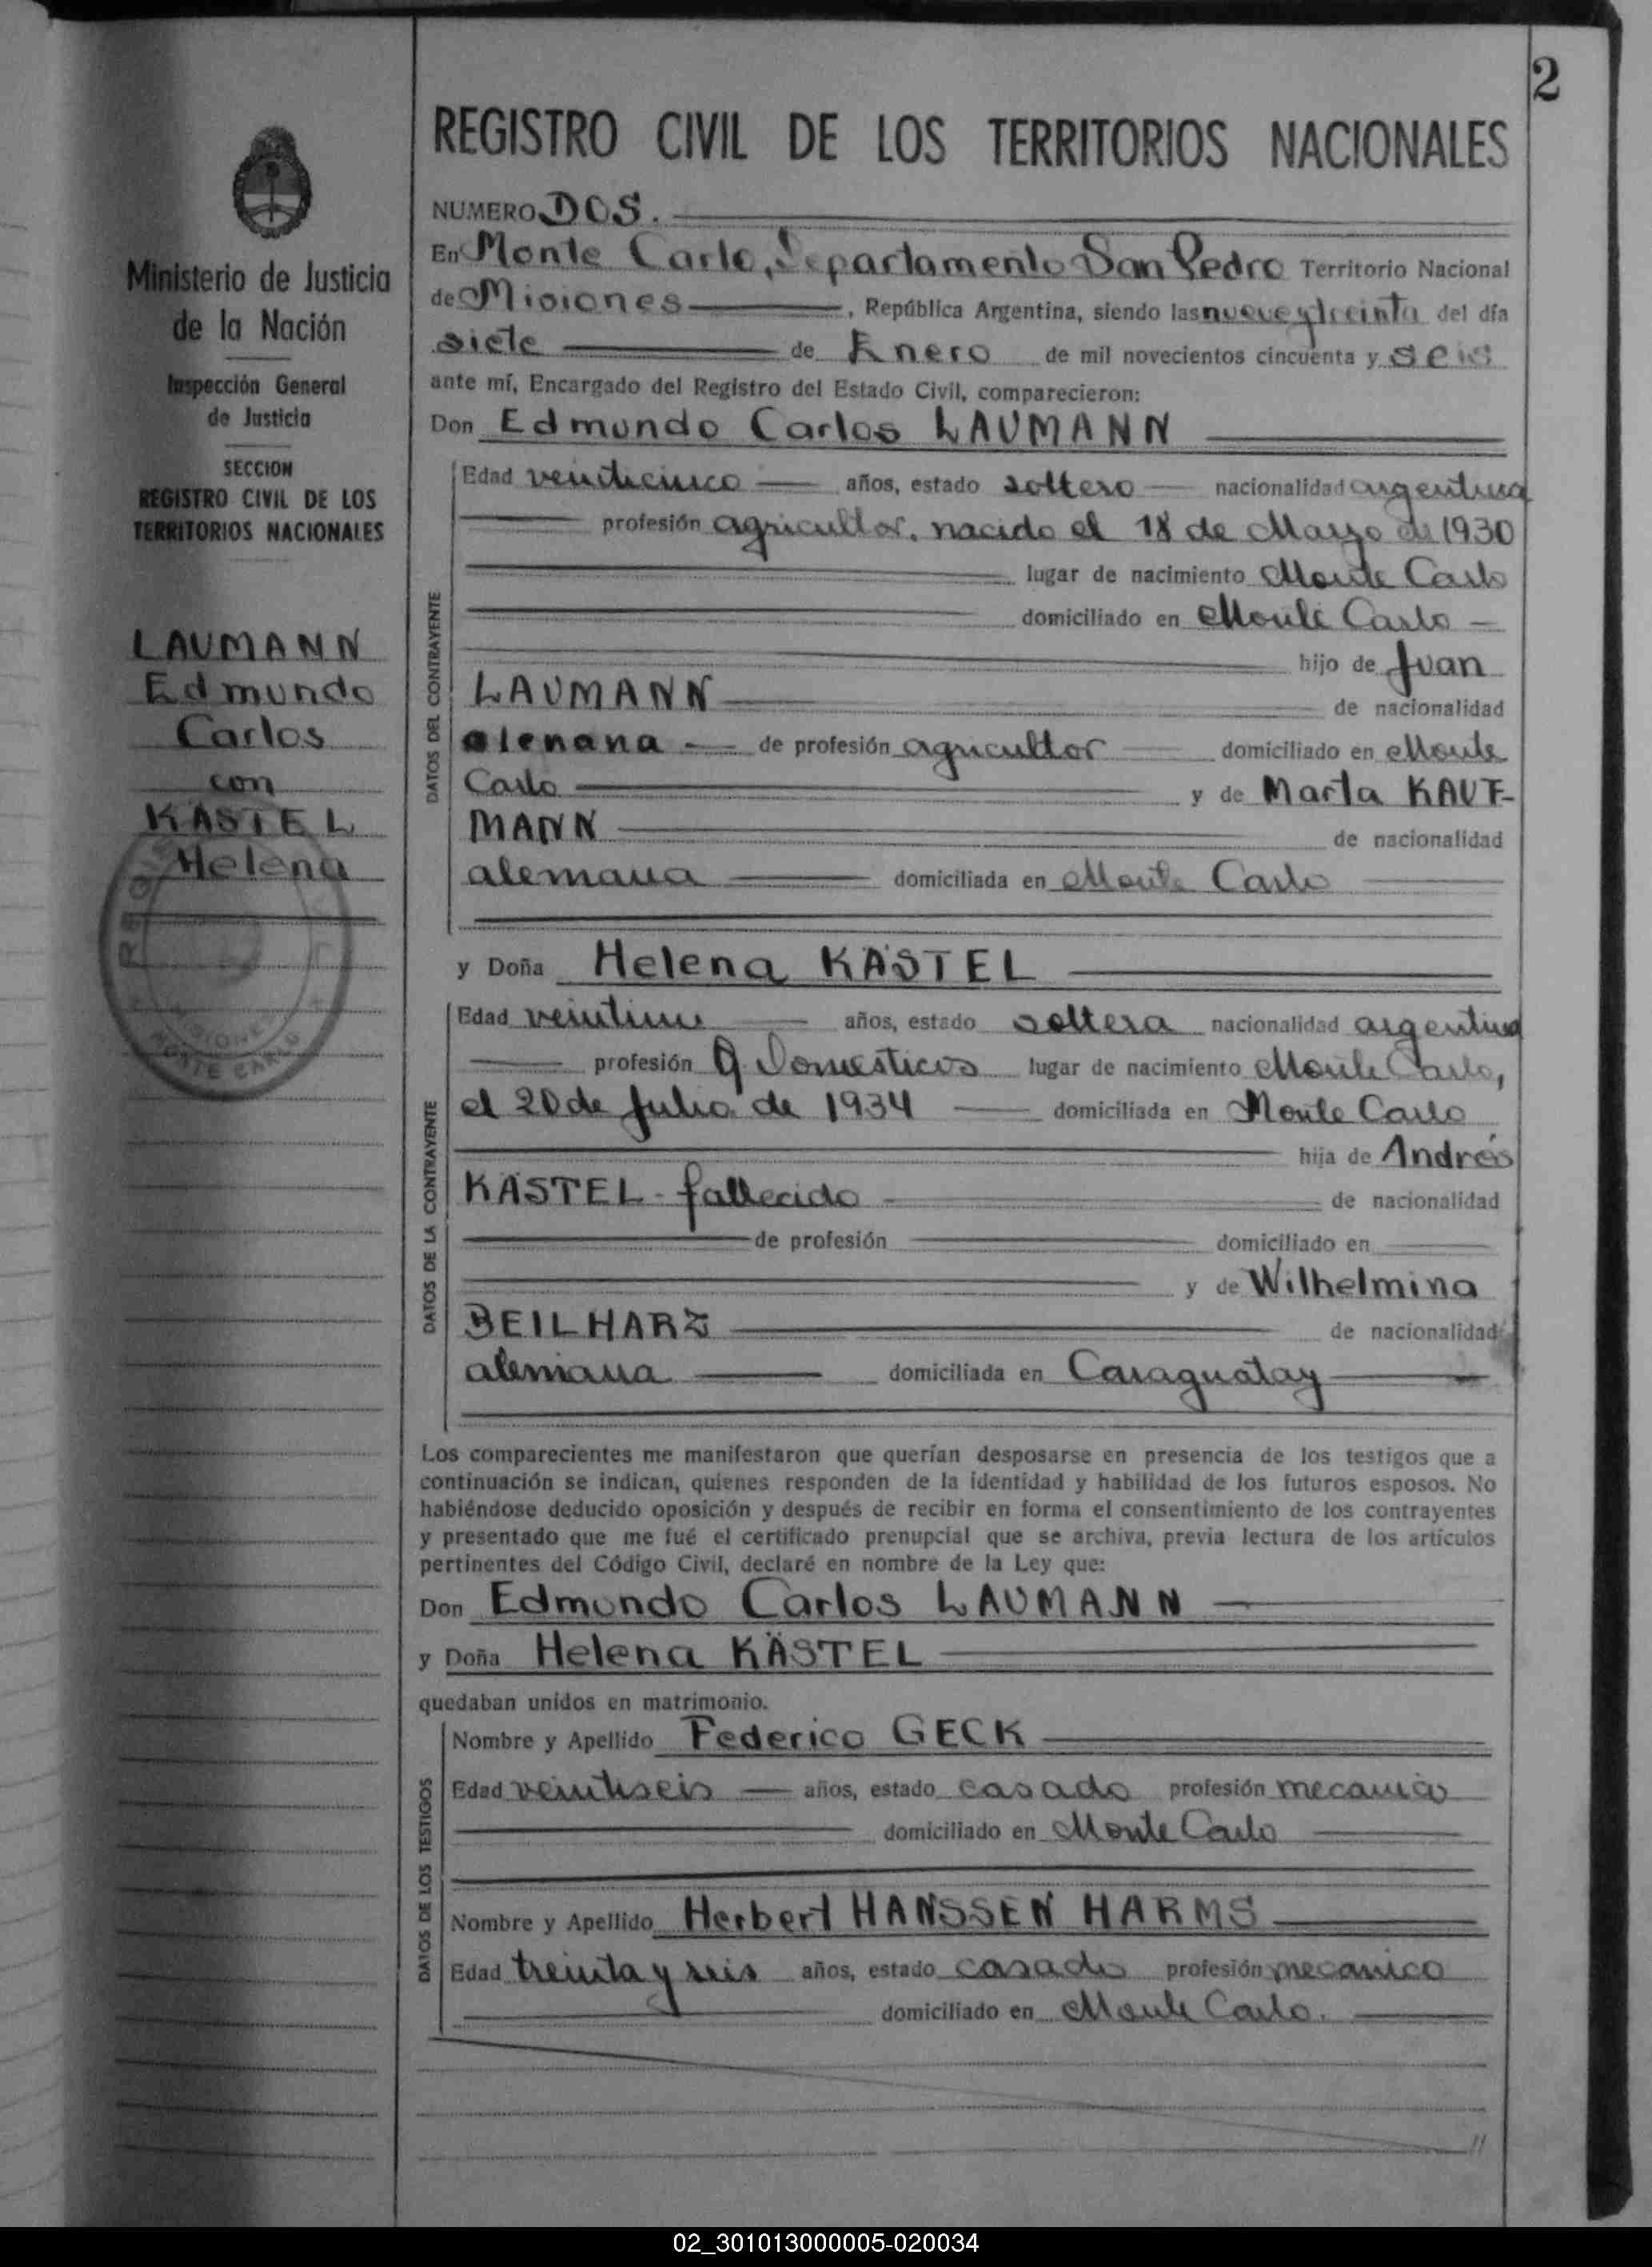 2
Ministerio de Justicia
de la Nación
Inspección General
de Justicia
SECCION
REGISTRO CIVIL DE LOS
TERRITORIOS NACIONALES
LAUMANN
Edmundo
Carlos
con
KÄSTEL
Helena
MISIONES
MONTE CARLO
REGISTRO CIVIL DE LOS TERRITORIOS NACIONALES
NUMERO DOS.
En Monte Carlo, Departamento San Pedro Territorio Nacional
de Misiones, República Argentina, siendo las nueve y treinta del día
siete de Enero de mil novecientos cincuenta y seis
ante mí, Encargado del Registro del Estado Civil, comparecieron:
Don Edmundo Carlos LAUMANN
DATOS DEL CONTRAYENTE
Edad veinticinco años, estado soltero nacionalidad argentina
profesión agricultor, nacido el 18 de Marzo de 1930
lugar de nacimiento Monte Carlo
domiciliado en Monte Carlo
hijo de Juan
LAUMANN de nacionalidad
alemana de profesión agricultor domiciliado en Monte
Carlo y de Marta KAUF-
MANN de nacionalidad
alemana domiciliada en Monte Carlo
y Doña Helena KÄSTEL
DATOS DE LA CONTRAYENTE
Edad veintiun años, estado soltera nacionalidad argentina
profesión Q. Domesticos lugar de nacimiento Monte Carlo,
el 20 de Julio de 1934 domiciliada en Monte Carlo
hija de Andrés
KÄSTEL - fallecido de nacionalidad
de profesión domiciliado en
y de Wilhelmina
BEILHARZ de nacionalidad
alemana domiciliada en Caraguatay
Los comparecientes me manifestaron que querían desposarse en presencia de los testigos que a
continuación se indican, quienes responden de la identidad y habilidad de los futuros esposos. No
habiéndose deducido oposición y después de recibir en forma el consentimiento de los contrayentes
y presentado que me fué el certificado prenupcial que se archiva, previa lectura de los artículos
pertinentes del Código Civil, declaré en nombre de la Ley que:
Don Edmundo Carlos LAUMANN
y Doña Helena KÄSTEL
quedaban unidos en matrimonio.
DATOS DE LOS TESTIGOS
Nombre y Apellido Federico GECK
Edad veintiseis años, estado casado profesión mecanico
domiciliado en Monte Carlo
Nombre y Apellido Herbert HANSSEN HARMS
Edad treinta y seis años, estado casado profesión mecanico
domiciliado en Monte Carlo.
//
02_301013000005-020034